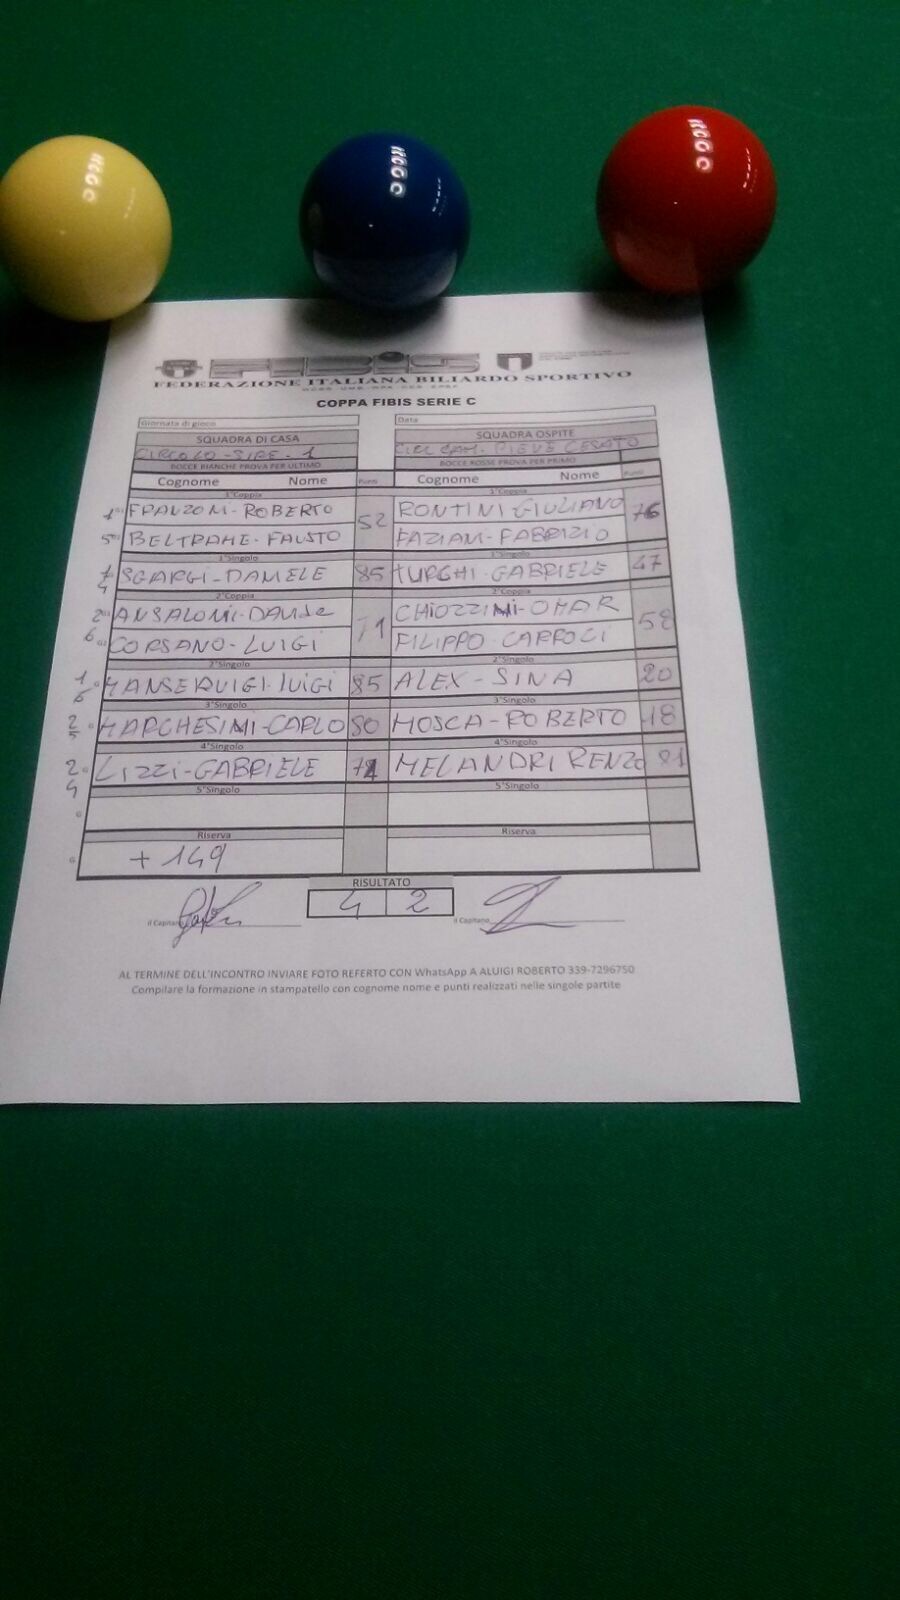 FIBIS
FEDERAZIONE ITALIANA BILIARDO SPORTIVO
COPPA FIBIS SERIE C
Giornata di gioco Data
SQUADRA DI CASA SQUADRA OSPITE
CIRCOLO-SIRE-1 PIEVE CESATO
BOCCE BIANCHE PROVA PER ULTIMO BOCCE ROSSE PROVA PER PRIMO
Cognome Nome Punti Cognome Nome Punti
1°Coppia 1°Coppia
FRANZONI-ROBERTO 52 RONTINI GIULIANO 76
BELTRAME-FAUSTO FAZIANI-FABRIZIO
1°Singolo 1°Singolo
SGARGI-DANIELE 85 TURGHI-GABRIELE 47
2°Coppia 2°Coppia
ANSALONI-DAVIDE 71 CHIOZZINI-OMAR 58
CORSANO-LUIGI FILIPPO-CARROCI
2°Singolo 2°Singolo
MANSERVIGI-LUIGI 85 ALEX-SINA 20
3°Singolo 3°Singolo
MARCHESINI-CARLO 80 MOSCA-ROBERTO 18
4°Singolo 4°Singolo
LIZZI-GABRIELE MELANDRI RENZO 81
5°Singolo 5°Singolo
Riserva Riserva
+149
RISULTATO
4 2
il Capitano il Capitano
AL TERMINE DELL'INCONTRO INVIARE FOTO REFERTO CON WhatsApp A ALUIGI ROBERTO 339-7296750
Compilare la formazione in stampatello con cognome nome e punti realizzati nelle singole partite